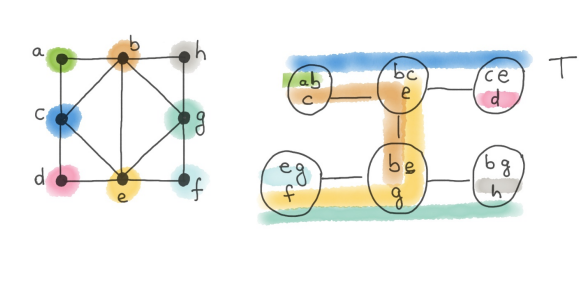 a b h
c g
d e f
ab
c
bc
e
ce
d
T
eg
f
be
g
bg
h